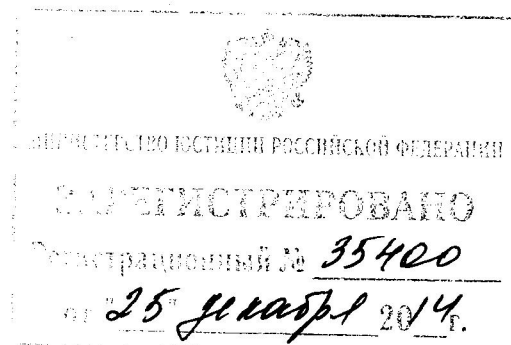 МИНИСТЕРСТВО ЮСТИЦИИ РОССИЙСКОЙ ФЕДЕРАЦИИ
ЗАРЕГИСТРИРОВАНО
Регистрационный № 35400
от "25" декабря 2014г.